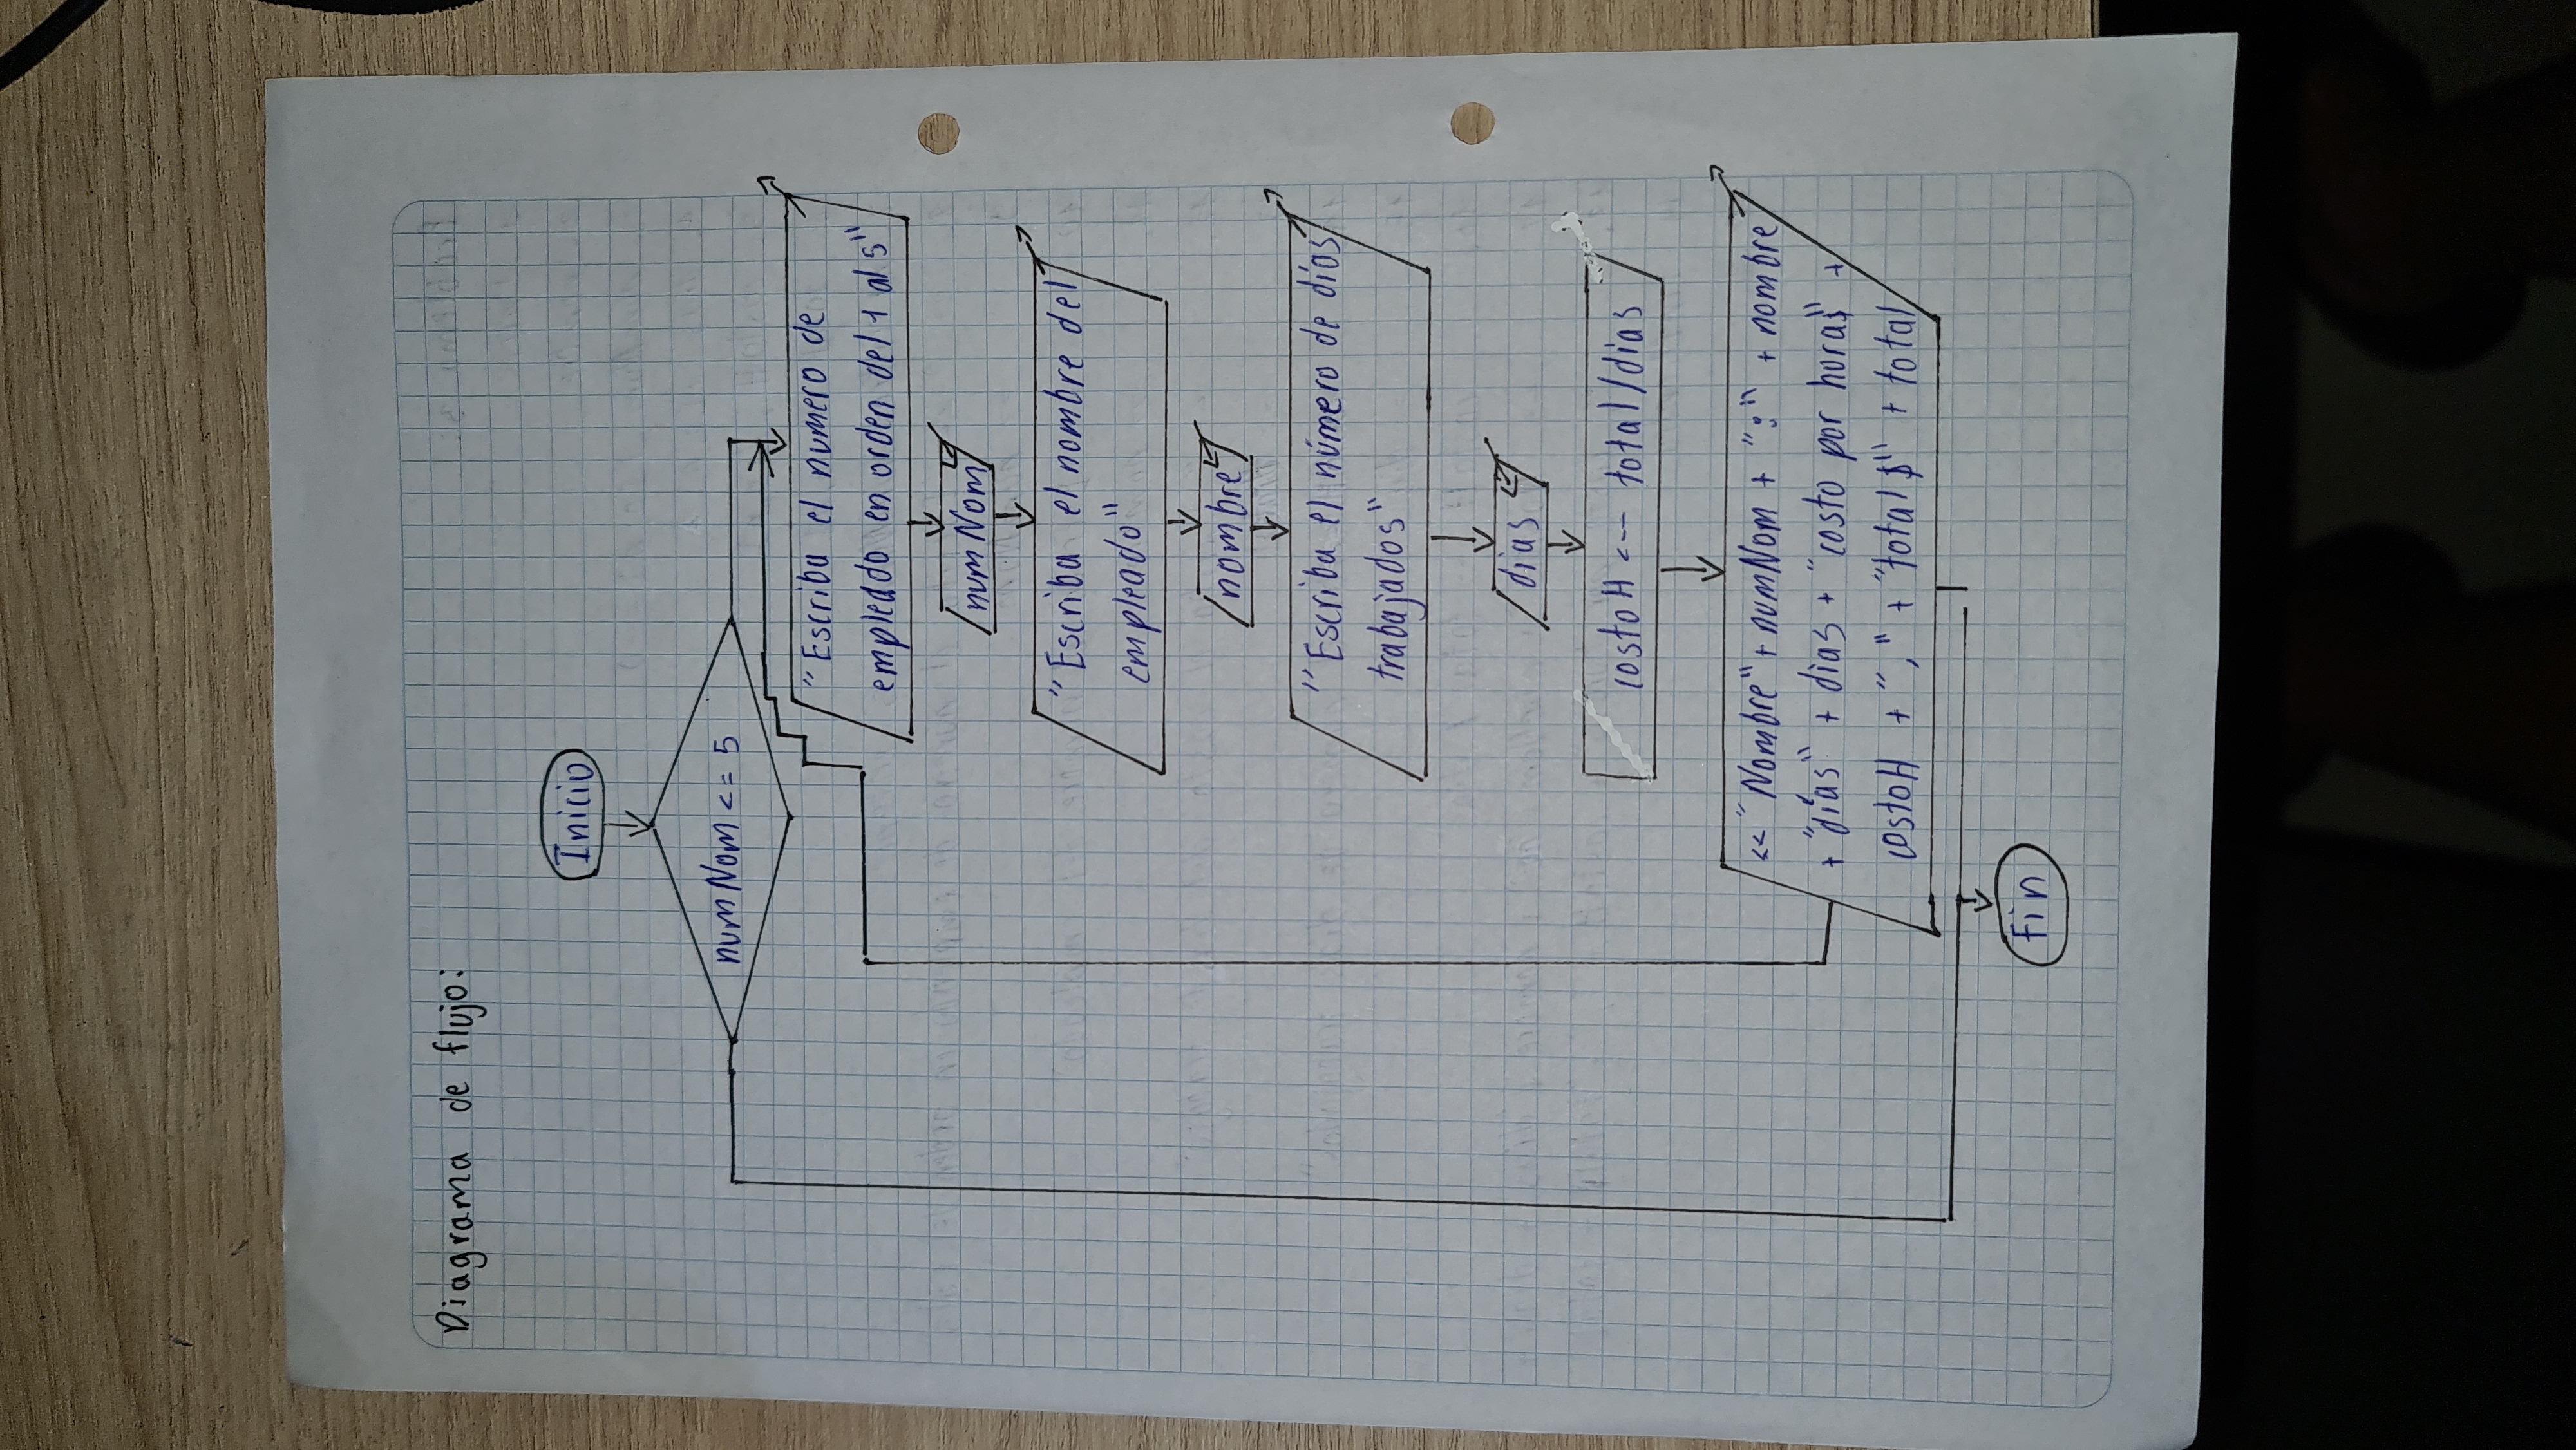 Diagrama de flujo:
Inicio
numNom <= 5
"Escriba el numero de
empleado en orden del 1 al 5"
numNom
"Escriba el nombre del
empleado"
nombre
"Escriba el número de días
trabajados"
dias
costoH <-- total/dias
<< "Nombre" + numNom + ":" + nombre
+ "días" + dias + "costo por hora$" +
costoH + "," + "total $" + total
fin